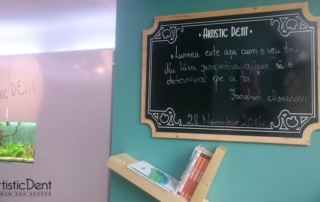 • ARTISTIC DENT •
"Lumea este așa cum o vezi tu.
Nu lăsa perspectiva altora să o
determine pe a ta."
28 Noiembrie
TIC DENT
ArtisticDent